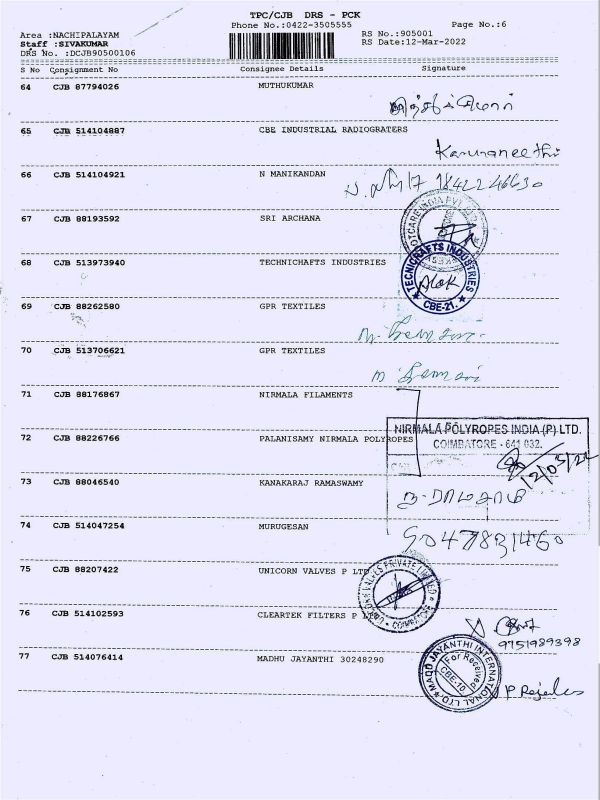 TPC/CJB DRS - PCK
Phone No.:0422-3505555
Page No.:6
Area :NACHIPALAYAM
RS No.:905001
Staff :SIVAKUMAR
RS Date:12-Mar-2022
DRS No. :DCJB90500106
S No Consignment No Consignee Details Signature
64 CJB 87794026 MUTHUKUMAR
65 CJB 514104887 CBE INDUSTRIAL RADIOGRATERS
Karunaneethi
66 CJB 514104921 N MANIKANDAN
9842246630
67 CJB 88193592 SRI ARCHANA
68 CJB 513973940 TECHNICHAFTS INDUSTRIES
TECNICRAFTS INDUSTRIES
Alok
CBE-21.
69 CJB 88262580 GPR TEXTILES
70 CJB 513706621 GPR TEXTILES
71 CJB 88176867 NIRMALA FILAMENTS
NIRMALA POLYROPES INDIA (P) LTD.
COIMBATORE - 641 032.
72 CJB 88226766 PALANISAMY NIRMALA POLYROPES
12/03/22
73 CJB 88046540 KANAKARAJ RAMASWAMY
74 CJB 514047254 MURUGESAN
9047831460
75 CJB 88207422 UNICORN VALVES P LTD
76 CJB 514102593 CLEARTEK FILTERS P
9751989398
77 CJB 514076414 MADHU JAYANTHI 30248290
JAYANTHI INTERNATIONAL LTD
For Received
CBE-10
P Rajales